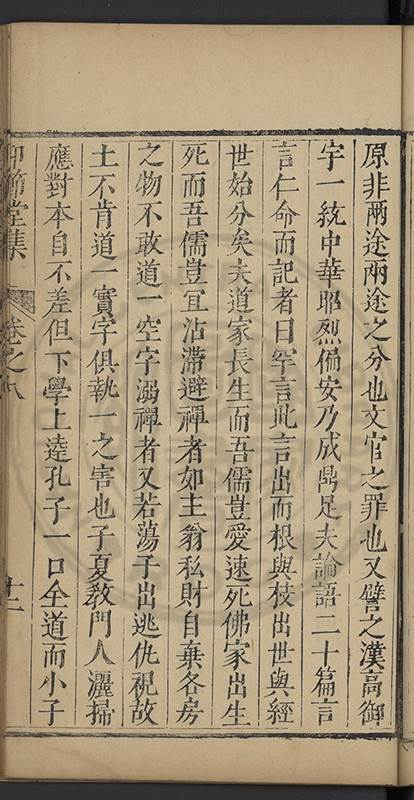 原非兩途兩途之分也文官之罪也又譬之漢高御
宇一統中華昭烈偏安乃成鼎足夫論語二十篇言
言仁命而記者曰罕言此言出而根與枝出世與經
世始分矣夫道家長生而吾儒豈愛速死佛家出生
死而吾儒豈宜沾滯避禪者如主翁私財自棄各房
之物不敢道一空字溺禪者又若蕩子出逃仇視故
土不肯道一實字俱執一之害也子夏教門人灑掃
應對本自不差但下學上達孔子一口全道而小子
仰節堂集 卷之八 十二